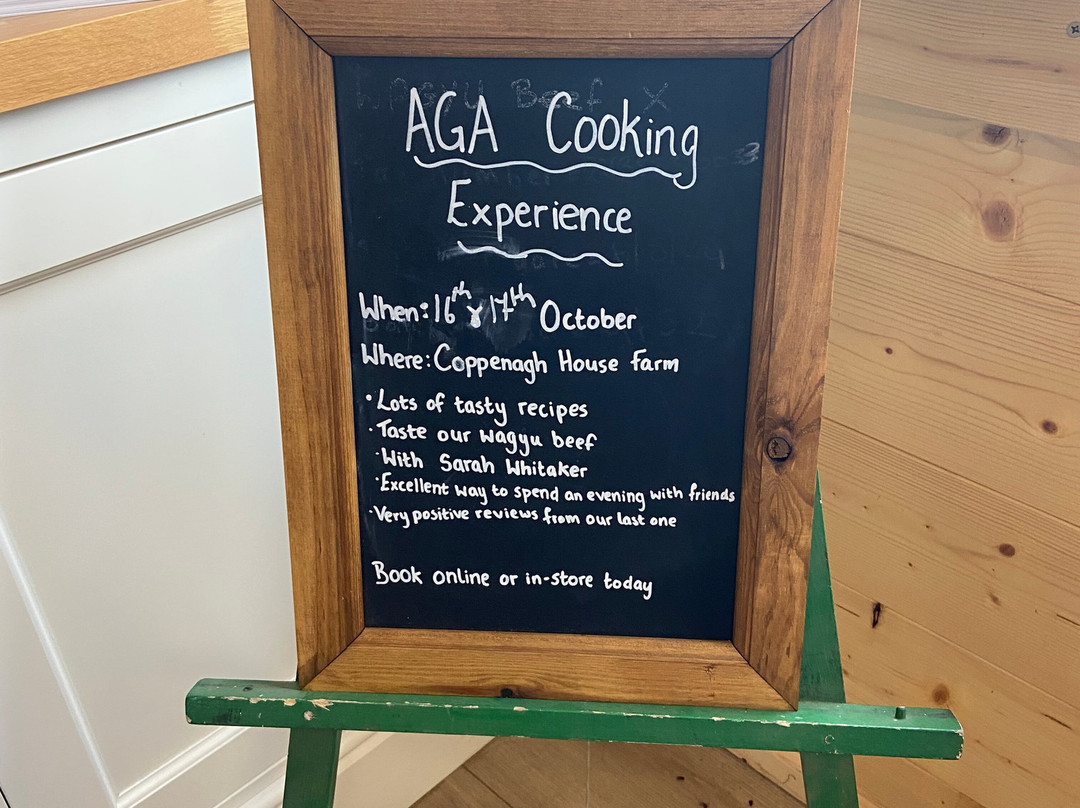 AGA Cooking
Experience
When: 16th & 17th October
Where: Coppenagh House Farm
• Lots of tasty recipes
• Taste our wagyu beef
• With Sarah Whitaker
• Excellent way to spend an evening with friends
• Very positive reviews from our last one
Book online or in-store today